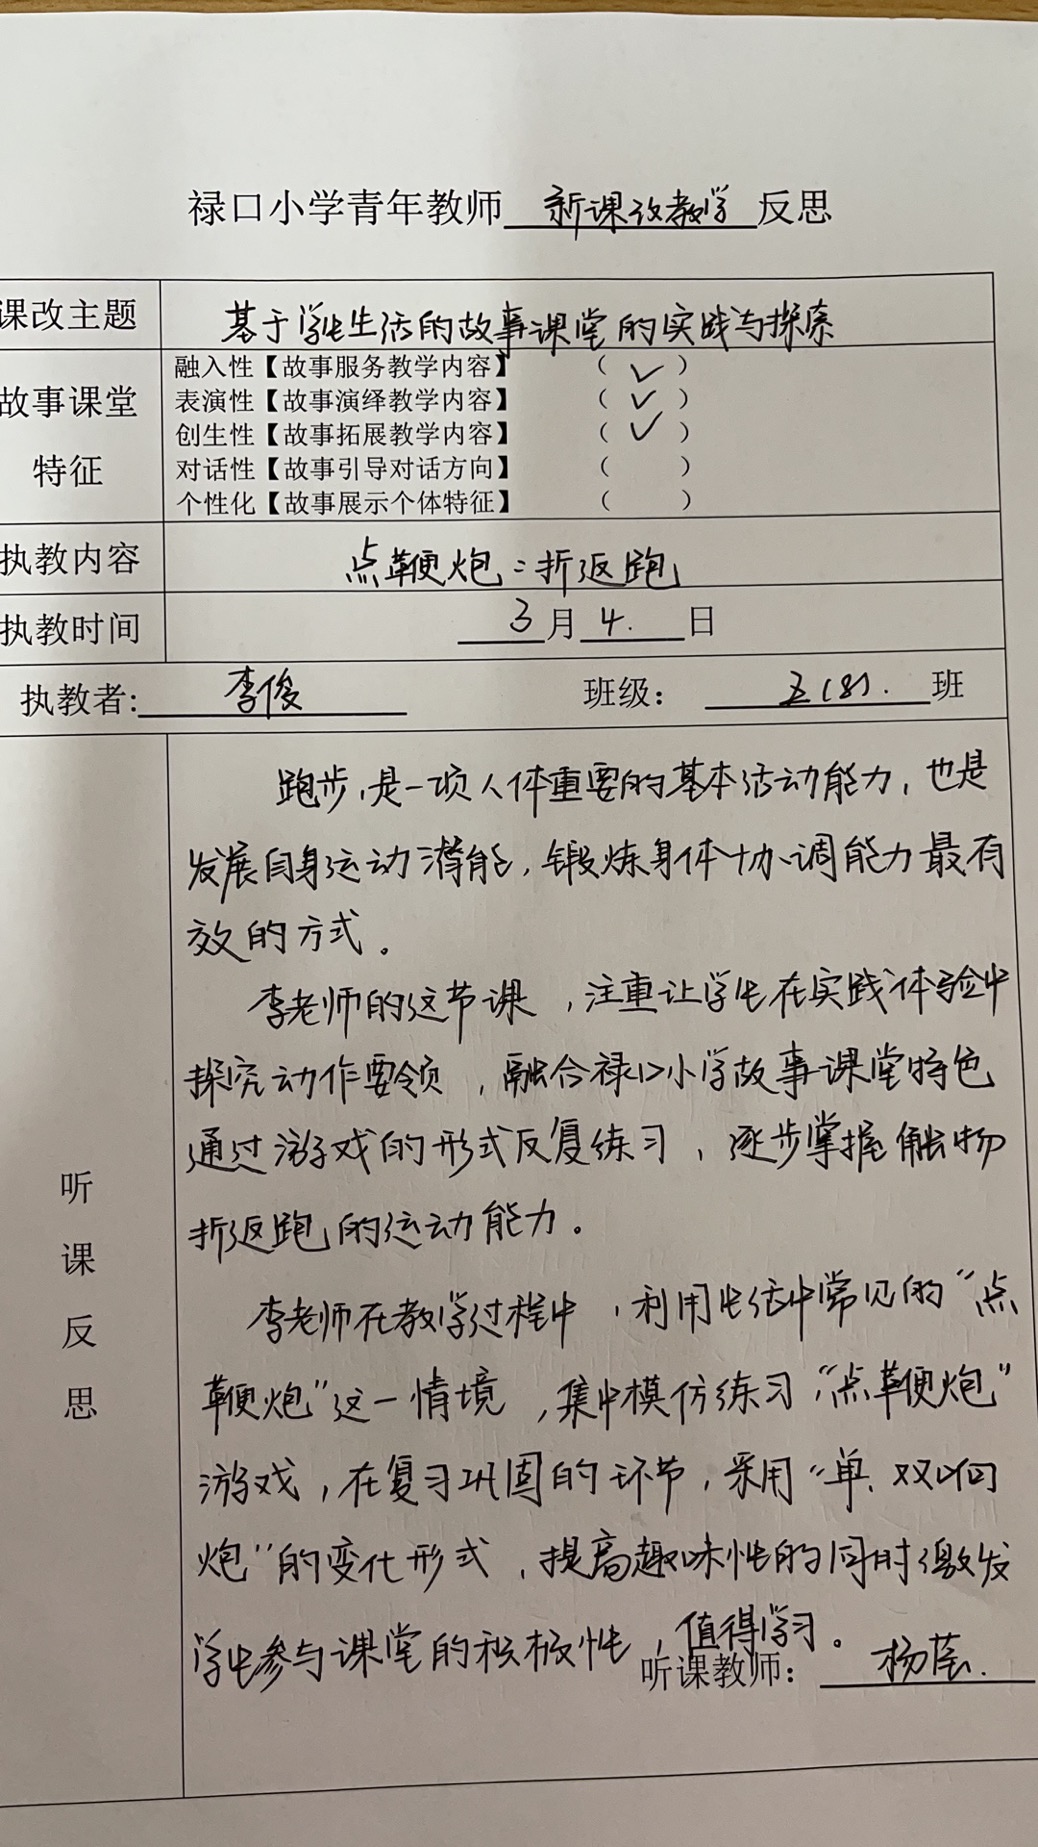 禄口小学青年教师 新课改教学 反思
课改主题 基于学生生活的故事课堂的实践与探索
故事课堂特征
融入性【故事服务教学内容】 ( ✓ )
表演性【故事演绎教学内容】 ( ✓ )
创生性【故事拓展教学内容】 ( ✓ )
对话性【故事引导对话方向】 ( )
个性化【故事展示个体特征】 ( )
执教内容 点鞭炮:折返跑
执教时间 3月4.日
执教者: 李俊 班级: 五(8).班
听课反思
跑步,是一项人体重要的基本活动能力,也是
发展自身运动潜能,锻炼身体协调能力最有
效的方式。
李老师的这节课,注重让学生在实践体验中
探究动作要领,融合禄口小学故事课堂特色
通过游戏的形式反复练习,逐步掌握触物
折返跑的运动能力。
李老师在教学过程中,利用生活中常见的“点
鞭炮”这一情境,集中模仿练习“点鞭炮”
游戏,在复习巩固的环节,采用“单、双响
炮”的变化形式,提高趣味性的同时激发
学生参与课堂的积极性,值得学习。
听课教师: 杨蓓.